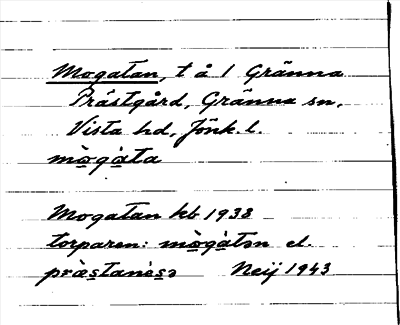 Mogatan, t å 1 Gränna
Prästgård, Gränna sn,
Vista hd, Jönk. l.
mògàta
Mogatan kb 1938
torparen: mògàtən el.
Neij 1943